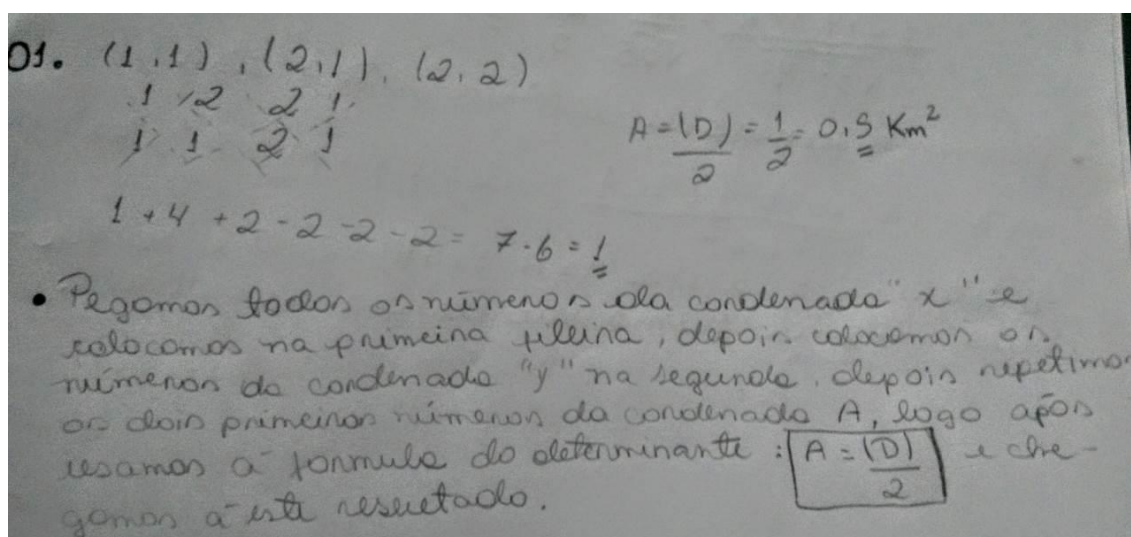 01. (1,1), (2,1), (2,2)
1 2 2 1
1 1 2 1
A = (D)/2 = 1/2 = 0,5 Km²
1 + 4 + 2 - 2 - 2 - 2 = 7 - 6 = 1
• Pegamos todos os números da cordenada "x" e
colocamos na primeira fileira, depois colocamos os
números da cordenada "y" na segunda, depois repetimos
os dois primeiros números da cordenada A, logo após
usamos a formula do determinante : A = (D)/2 e che-
gamos a este resultado.